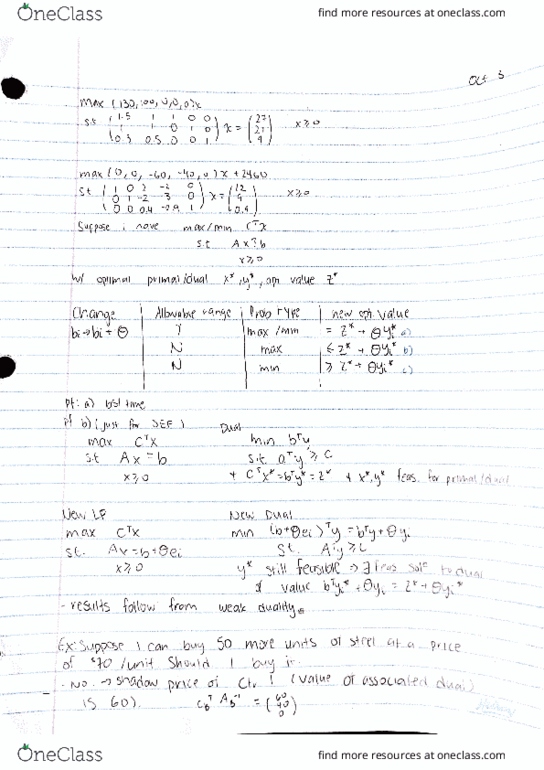 OneClass
find more resources at oneclass.com
Oct 3
max (130, 100, 0, 0, 0)x
st (1.5 1 1 0 0
1 1 0 1 0
0.5 0.5 0 0 1) x = (27
21
9) x ≥ 0
max (0, 0, -60, -40, 0)x + 2460
st (1 0 2 -2 0
0 1 -2 3 0
0 0 0.4 1) x = (12
9
) x ≥ 0
Suppose i have max/min CᵀX
s.t Ax ? b
x ≥ 0
w/ optimal primal/dual x*, y*, opt value z*
Change | Allowable range | Prob type | new opt. value
bi → bi + θ | Y | max/min | = z* + θyi* a)
N | max | ≤ z* + θyi* b)
N | min | ≥ z* + θyi* c)
Pf: a) last time
Pf b) (just for SEF)
Dual
max CᵀX
min bᵀy
s.t Ax = b
s.t aᵀy ≥ C
x ≥ 0
+ Cᵀx* = bᵀy* = z* + x*, y* feas. for primal/dual
New LP
New Dual
max CᵀX
min (b + θei)ᵀy = bᵀy + θyi
st. Ax = b + θei
st. Aᵀy ≥ C
x ≥ 0
y* still feasible ⇒ ∃ feas solⁿ to dual
value bᵀy* + θyi = z* + θyi*
- results follow from weak duality.
Ex: Suppose I can buy 50 more units of steel at a price
of $70/unit should I buy it.
- No. → shadow price of Ctr 1 (value of associated dual)
is 60). Cbᵀ Ab⁻¹ = (60
40
0)
OneClass
find more resources at oneclass.com